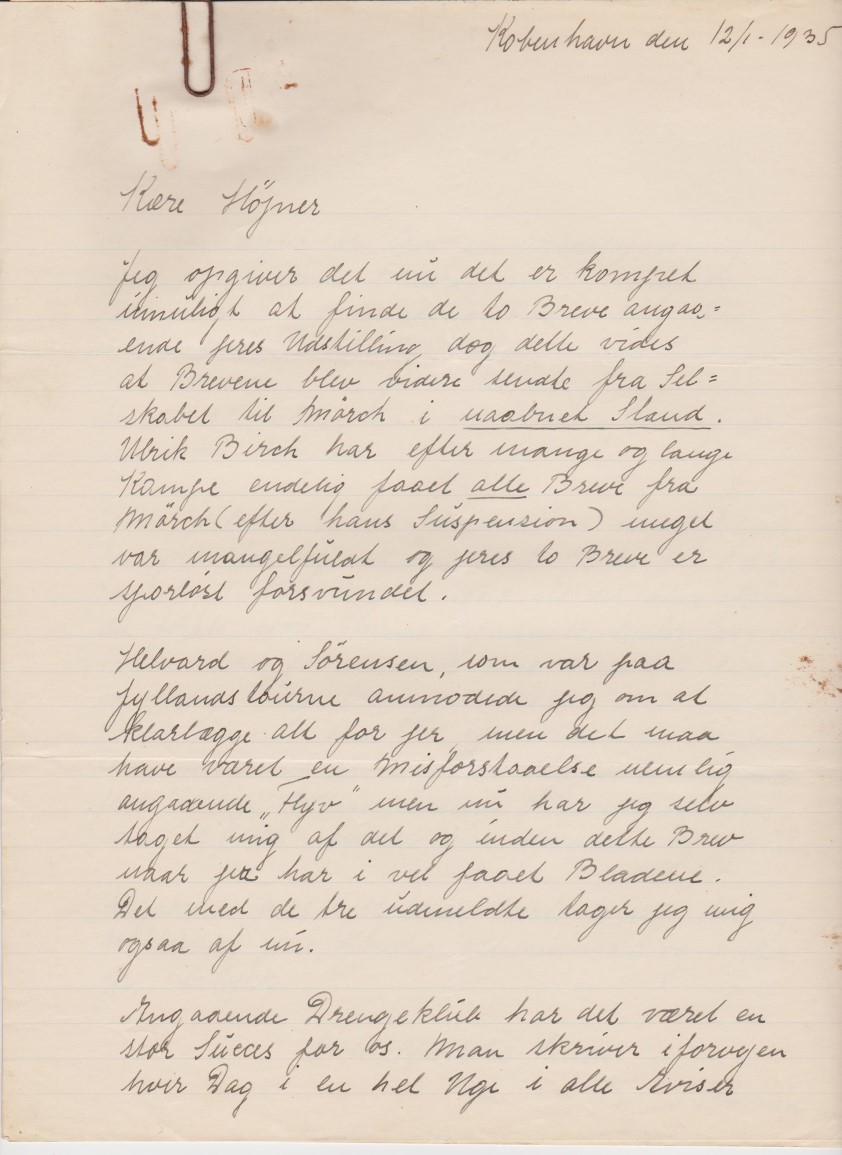 København den 12/1-1935
Kære Höjner
Jeg opgiver det nu det er komplet
umuligt at finde de to Breve angaa=
ende jeres Udstilling, dog dette vides
at Brevene blev videre sendte fra Sel=
skabet til Mörch i uaabnet Stand.
Ulrik Birch har efter mange og lange
Kampe endelig faaet alle Breve fra
Mörch (efter hans Suspension) meget
var mangelfuldt og jeres to Breve er
sporløst forsvundet.
Helvard og Sörensen, som var paa
Jyllandstourne anmodede jeg om at
klarlægge alt for jer, men det maa
have været en Misforstaaelse nemlig
angaaende „Flyv" men nu har jeg selv
taget mig af det og inden dette Brev
naar jer har i vel faaet Bladene.
Det med de tre udmeldte tager jeg mig
ogsaa af nu.
Angaaende Drengeklub har det været en
stor Succes for os. Man skriver iforvejen
hver Dag i en hel Uge i alle Aviser